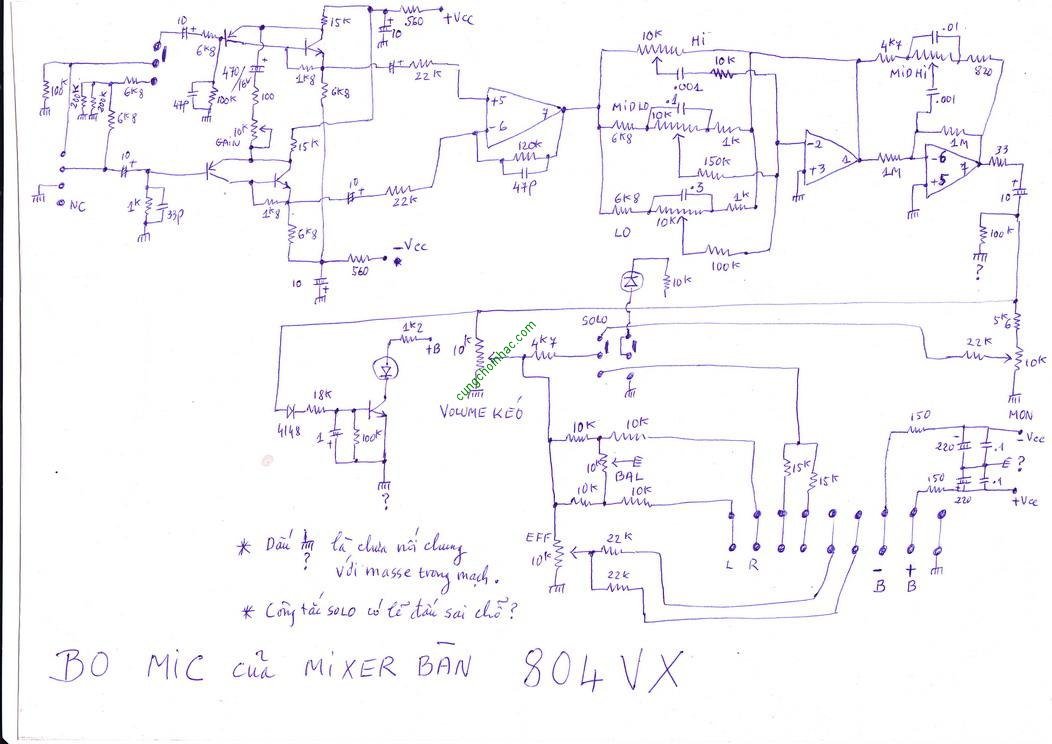 15K
560
+Vcc
10
10
6K8
1K8
22K
470/16V
6K8
100K
200K
200K
6K8
6K8
47P
100K
100
10K
GAIN
15K
NC
10
1K
33P
1K8
6K8
10
22K
-Vcc
560
10
+5
-6
7
120K
47P
10K
Hi
10K
.001
MiDLO
.1
10K
6K8
1K
150K
6K8
.3
10K
1K
LO
100K
-2
+3
1
4K7
.01
820
MiDHi
.001
1M
1M
-6
+5
7
33
10
100K
?
10K
SOLO
1K2
+B
10K
4K7
VOLUME KÉO
18K
4148
1
100K
?
22K
5K6
10K
MON
10K
10K
10K
E
BAL
10K
10K
15K
15K
150
-Vcc
220
.1
E ?
150
220
.1
+Vcc
EFF
10K
22K
22K
L
R
-
B
+
B
* Dấu ? là chưa nối chung
với masse trong mạch.
* Công tắc SOLO có lẽ đấu sai chỗ?
BO MiC của MiXER BÀN 804VX
cungchoinhac.com